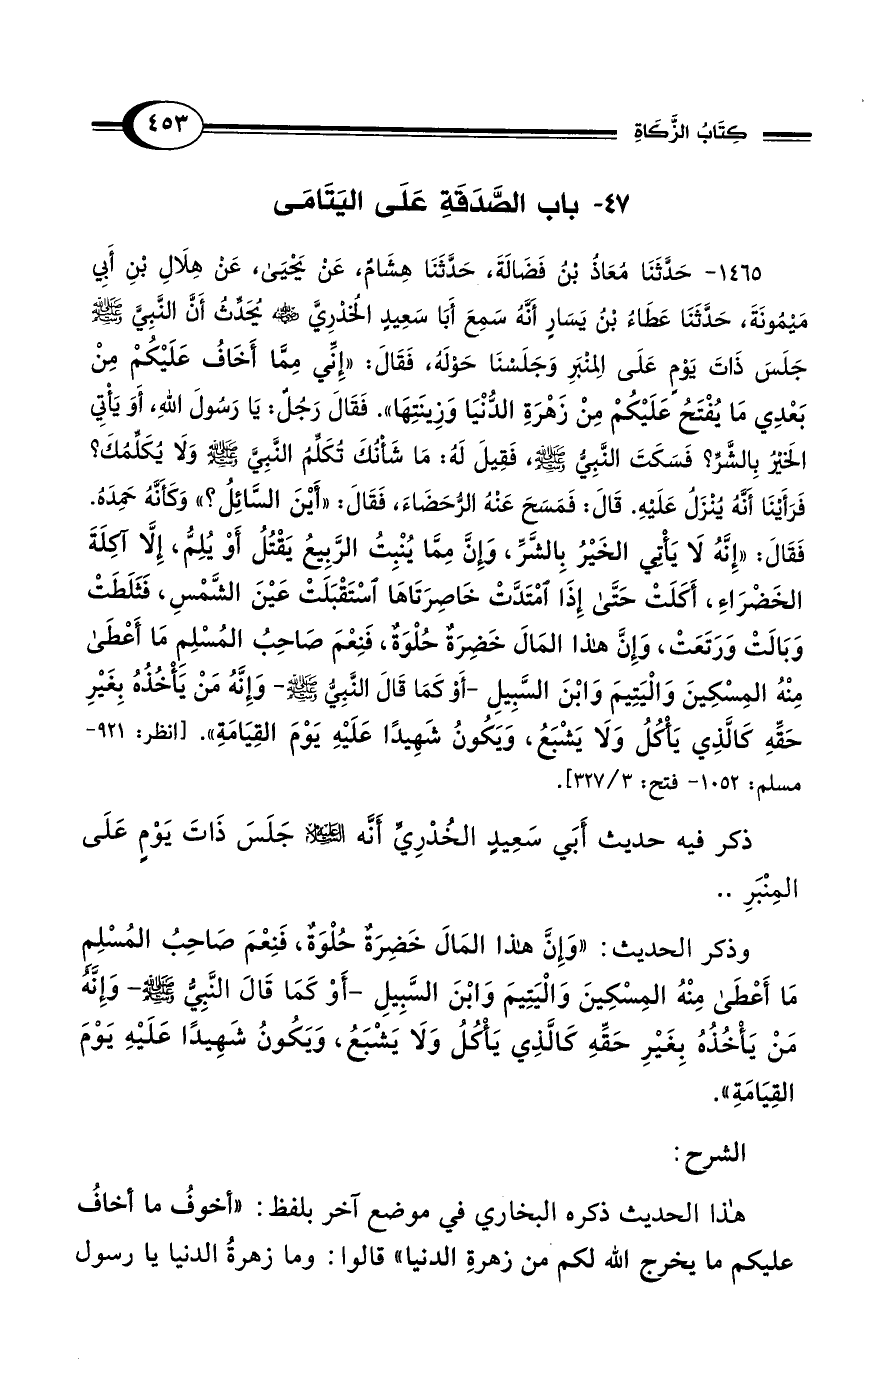 كِتَابُ الزَّكَاةِ ٤٥٣
٤٧- باب الصَّدَقَةِ عَلَى اليَتَامَى
١٤٦٥- حَدَّثَنَا مُعَاذُ بْنُ فَضَالَةَ، حَدَّثَنَا هِشَامٌ، عَنْ يَحْيَىٰ، عَنْ هِلَالِ بْنِ أَبِي
مَيْمُونَةَ، حَدَّثَنَا عَطَاءُ بْنُ يَسَارٍ أَنَّهُ سَمِعَ أَبَا سَعِيدٍ الخُدْرِيَّ رضي الله عنه يُحَدِّثُ أَنَّ النَّبِيَّ ﷺ
جَلَسَ ذَاتَ يَوْمٍ عَلَى المِنْبَرِ وَجَلَسْنَا حَوْلَهُ، فَقَالَ: «إِنِّي مِمَّا أَخَافُ عَلَيْكُمْ مِنْ
بَعْدِي مَا يُفْتَحُ عَلَيْكُمْ مِنْ زَهْرَةِ الدُّنْيَا وَزِينَتِهَا». فَقَالَ رَجُلٌ: يَا رَسُولَ اللهِ، أَوَ يَأْتِي
الخَيْرُ بِالشَّرِّ؟ فَسَكَتَ النَّبِيُّ ﷺ، فَقِيلَ لَهُ: مَا شَأْنُكَ تُكَلِّمُ النَّبِيَّ ﷺ وَلَا يُكَلِّمُكَ؟
فَرَأَيْنَا أَنَّهُ يُنْزَلُ عَلَيْهِ. قَالَ: فَمَسَحَ عَنْهُ الرُّحَضَاءَ، فَقَالَ: «أَيْنَ السَّائِلُ؟» وَكَأَنَّهُ حَمِدَهُ.
فَقَالَ: «إِنَّهُ لَا يَأْتِي الخَيْرُ بِالشَّرِّ، وَإِنَّ مِمَّا يُنْبِتُ الرَّبِيعُ يَقْتُلُ أَوْ يُلِمُّ، إِلَّا آكِلَةَ
الخَضْرَاءِ، أَكَلَتْ حَتَّىٰ إِذَا ٱمْتَدَّتْ خَاصِرَتَاهَا ٱسْتَقْبَلَتْ عَيْنَ الشَّمْسِ، فَثَلَطَتْ
وَبَالَتْ وَرَتَعَتْ، وَإِنَّ هٰذا المَالَ خَضِرَةٌ حُلْوَةٌ، فَنِعْمَ صَاحِبُ المُسْلِمِ مَا أَعْطَىٰ
مِنْهُ المِسْكِينَ وَالْيَتِيمَ وَابْنَ السَّبِيلِ -أَوْ كَمَا قَالَ النَّبِيُّ ﷺ- وَإِنَّهُ مَنْ يَأْخُذُهُ بِغَيْرِ
حَقِّهِ كَالَّذِي يَأْكُلُ وَلَا يَشْبَعُ، وَيَكُونُ شَهِيدًا عَلَيْهِ يَوْمَ القِيَامَةِ». [انظر: ٩٢١-
مسلم: ١٠٥٢- فتح: ٣/ ٣٢٧].
ذكر فيه حديث أَبَي سَعِيدٍ الخُدْرِيِّ أنَّه عليه السلام جَلَسَ ذَاتَ يَوْمٍ عَلَى
المِنْبَرِ ..
وذكر الحديث: «وَإِنَّ هٰذا المَالَ خَضِرَةٌ حُلْوَةٌ، فَنِعْمَ صَاحِبُ المُسْلِمِ
مَا أَعْطَىٰ مِنْهُ المِسْكِينَ وَالْيَتِيمَ وَابْنَ السَّبِيلِ -أَوْ كَمَا قَالَ النَّبِيُّ ﷺ- وَإِنَّهُ
مَنْ يَأْخُذُهُ بِغَيْرِ حَقِّهِ كَالَّذِي يَأْكُلُ وَلَا يَشْبَعُ، وَيَكُونُ شَهِيدًا عَلَيْهِ يَوْمَ
القِيَامَةِ».
الشرح:
هٰذا الحديث ذكره البخاري في موضع آخر بلفظ: «أخوفُ ما أخافُ
عليكم ما يخرج الله لكم من زهرةِ الدنيا» قالوا: وما زهرةُ الدنيا يا رسول